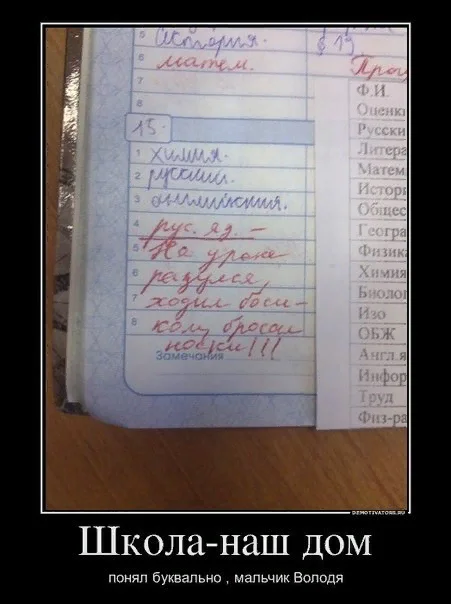 5 История. § 19
6 матем.
7
8
15.
1 химия.
2 русский.
3 английский.
4 рус. яз. –
5 На уроке
6 разулся,
7 ходил боси-
8 ком, бросал
носки!!!
Замечания
Ф.И.
Оценки
Русски
Литера
Матем
Истори
Общес
Геогра
Физик
Химия
Биолог
Изо
ОБЖ
Англ я
Инфор
Труд
Физ-ра
DEMOTIVATORS.RU
Школа-наш дом
понял буквально , мальчик Володя